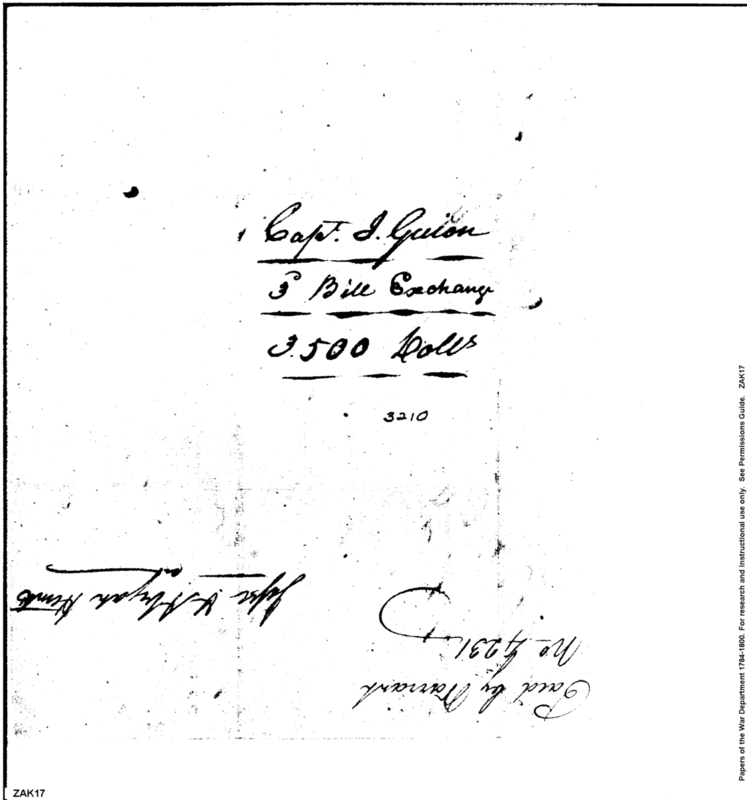 Capt. I. Guion
3d Bill Exchange
3.500 Dolls
3210
Jesse & Abijah Hunt
Paid by Warrant
No. 4231
Papers of the War Department 1784-1800. For research and instructional use only. See Permissions Guide. ZAK17
ZAK17